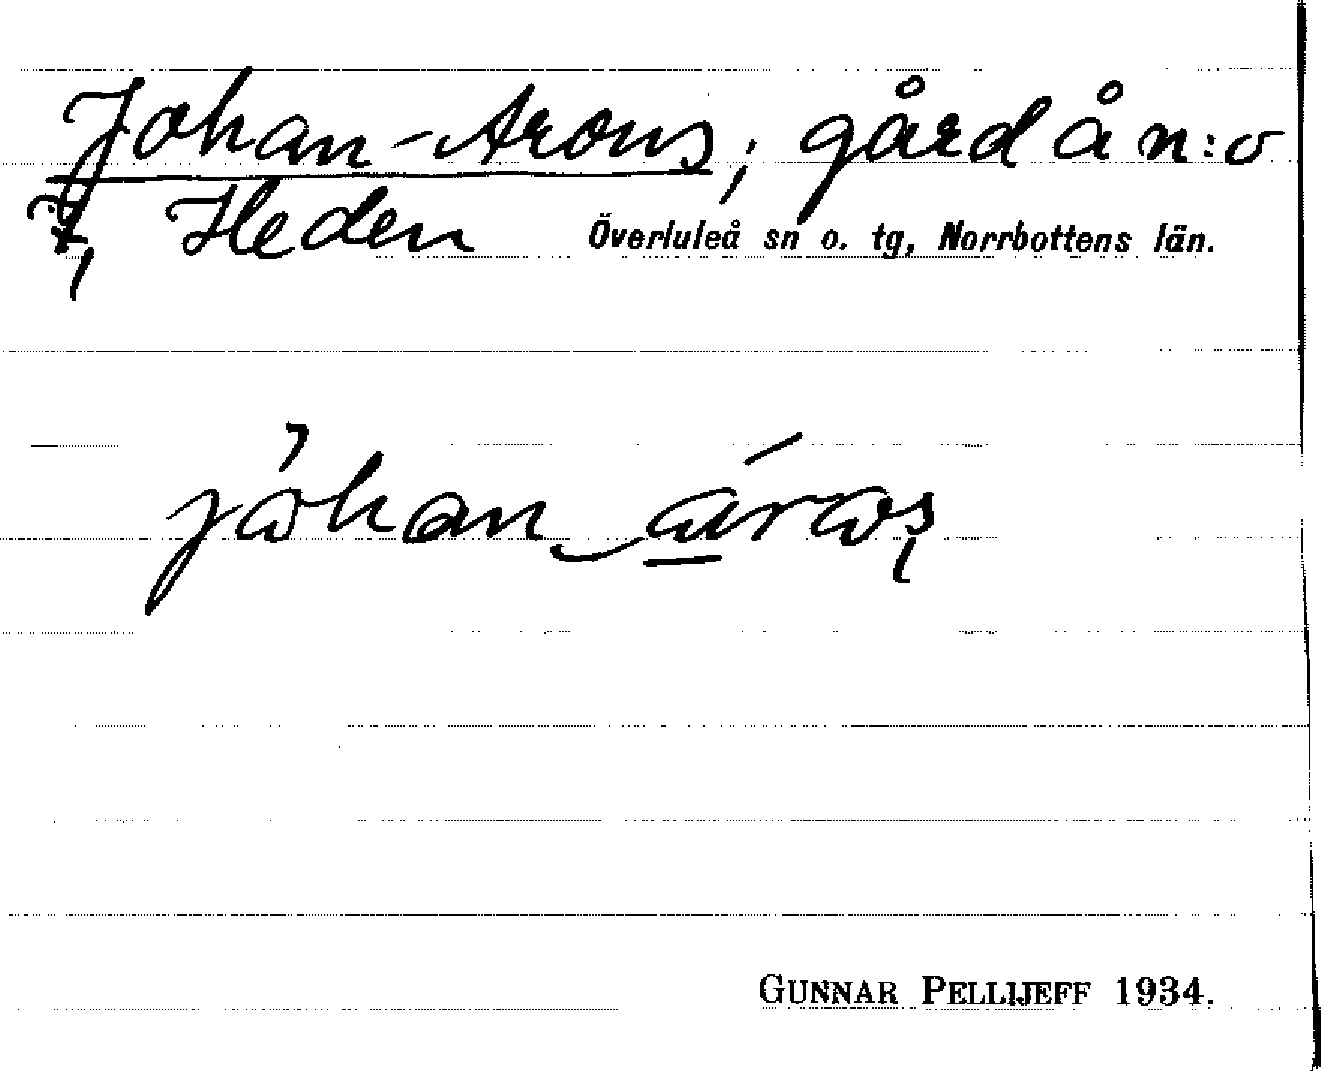 Johan-Arons, gård å n:o
7, Heden Överluleå sn o. tg, Norrbottens län.
GUNNAR PELLIJEFF 1934.